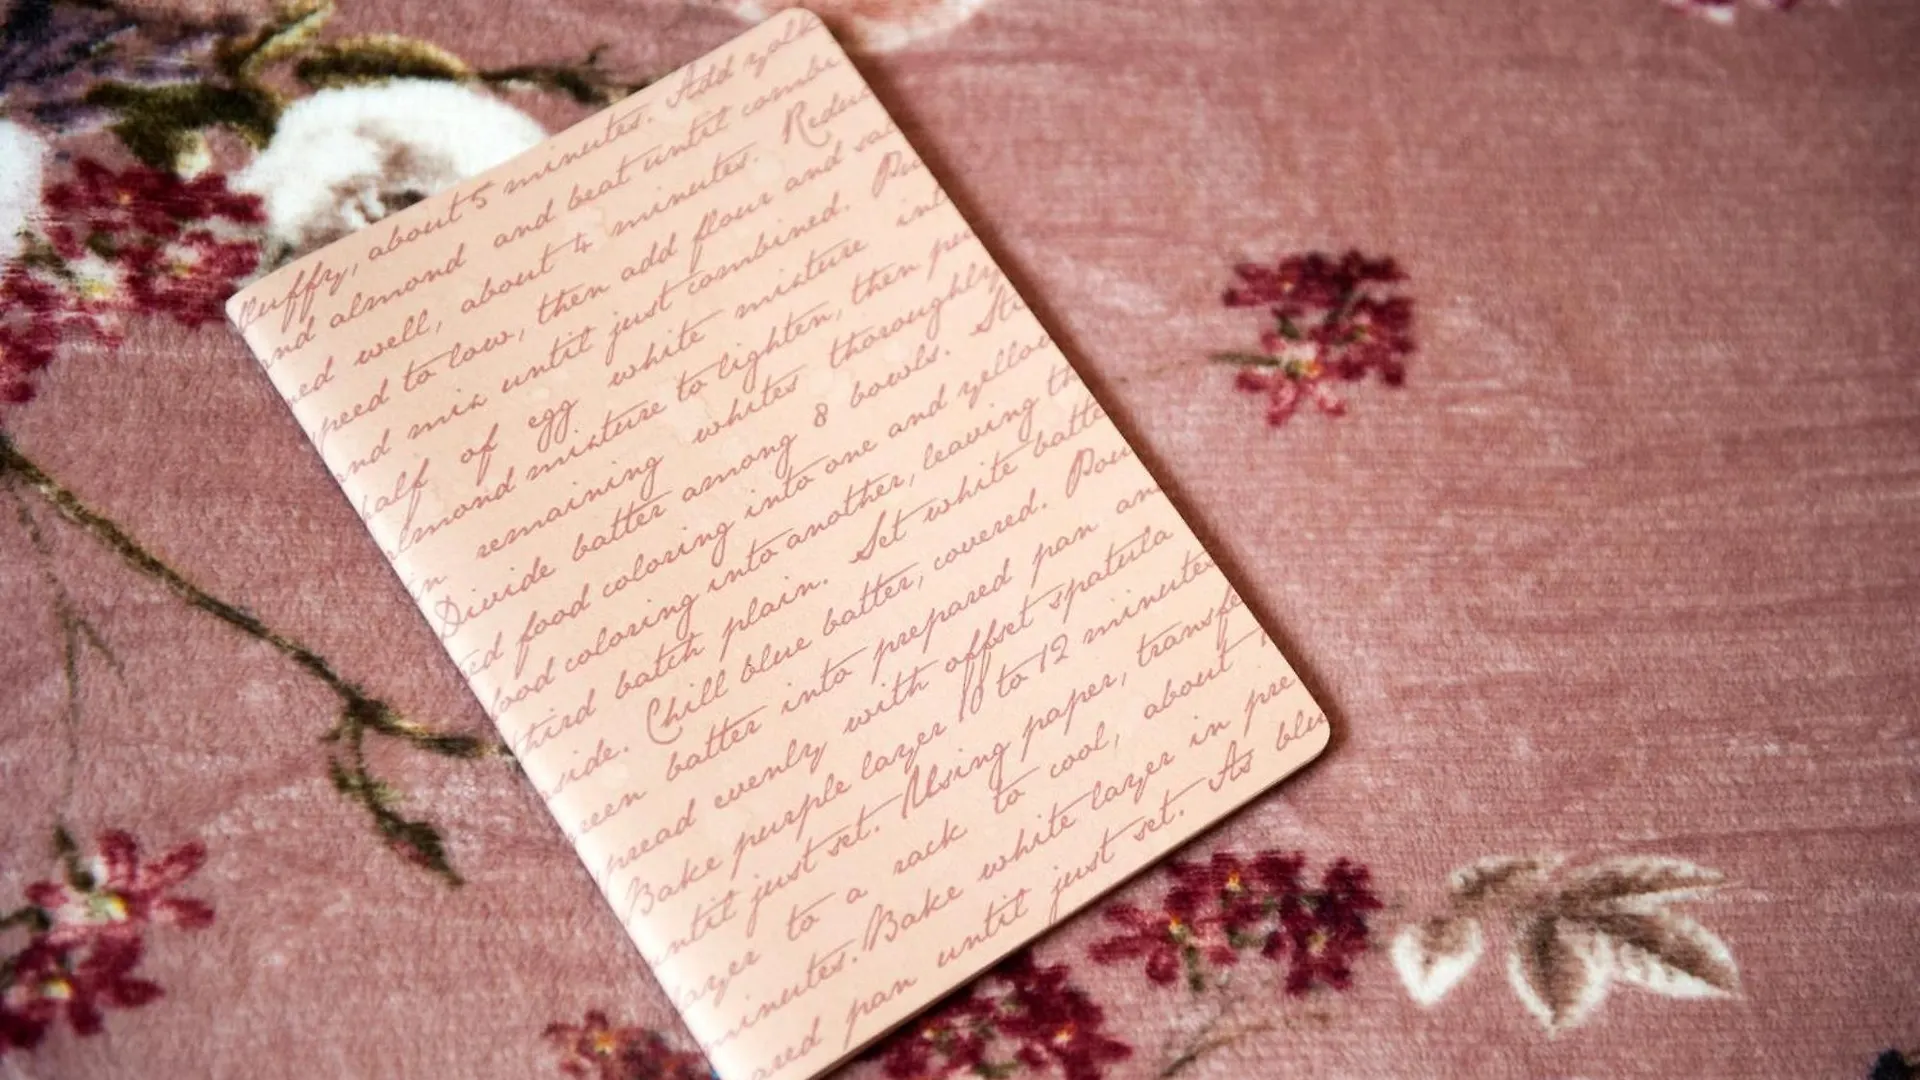 fluffy, about 5 minutes. Add yolk
and almond and beat until combi
ed well, about 4 minutes. Redu
peed to low, then add flour and sal
and mix until just combined. Pu
half of egg white mixture int
almond mixture to lighten, then pu
in remaining whites thoroughly
Divide batter among 8 bowls. Sti
ed food coloring into one and yellow
food coloring into another, leaving th
third batch plain. Set white batte
side. Chill blue batter, covered. Pour
reen batter into prepared pan an
pread evenly with offset spatula
Bake purple layer 10 to 12 minutes
until just set. Using paper, transfe
layer to a rack to cool, about
minutes. Bake white layer in pre
ared pan until just set. As blu